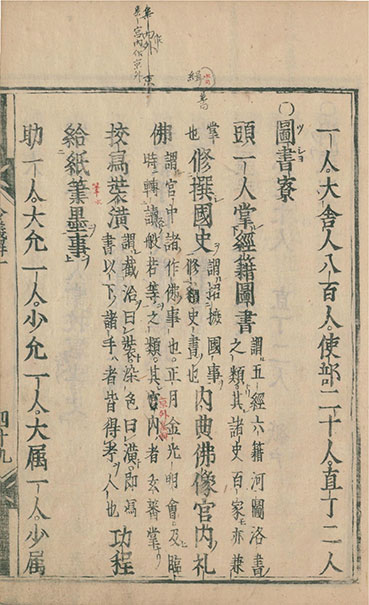 一人。大舎人八百人。使部二十人。直丁二人
〇圖書寮
頭一人掌經籍圖書謂五經六籍河圖洛書
之類其諸史百家亦兼
掌
也修撰國史謂招撫國事
修緝史書也内典佛像宮内礼
佛謂宮中諸作佛事也。正月金光明會及臨
時轉讀般若等之類。其宮内者玄審掌
挍寫裝潢謂截治曰裝染色曰潢。即寫
書以下諸手者皆得考人也功程
給紙筆墨事
助一人。大允一人。少允一人。大属一人。少属
四十九